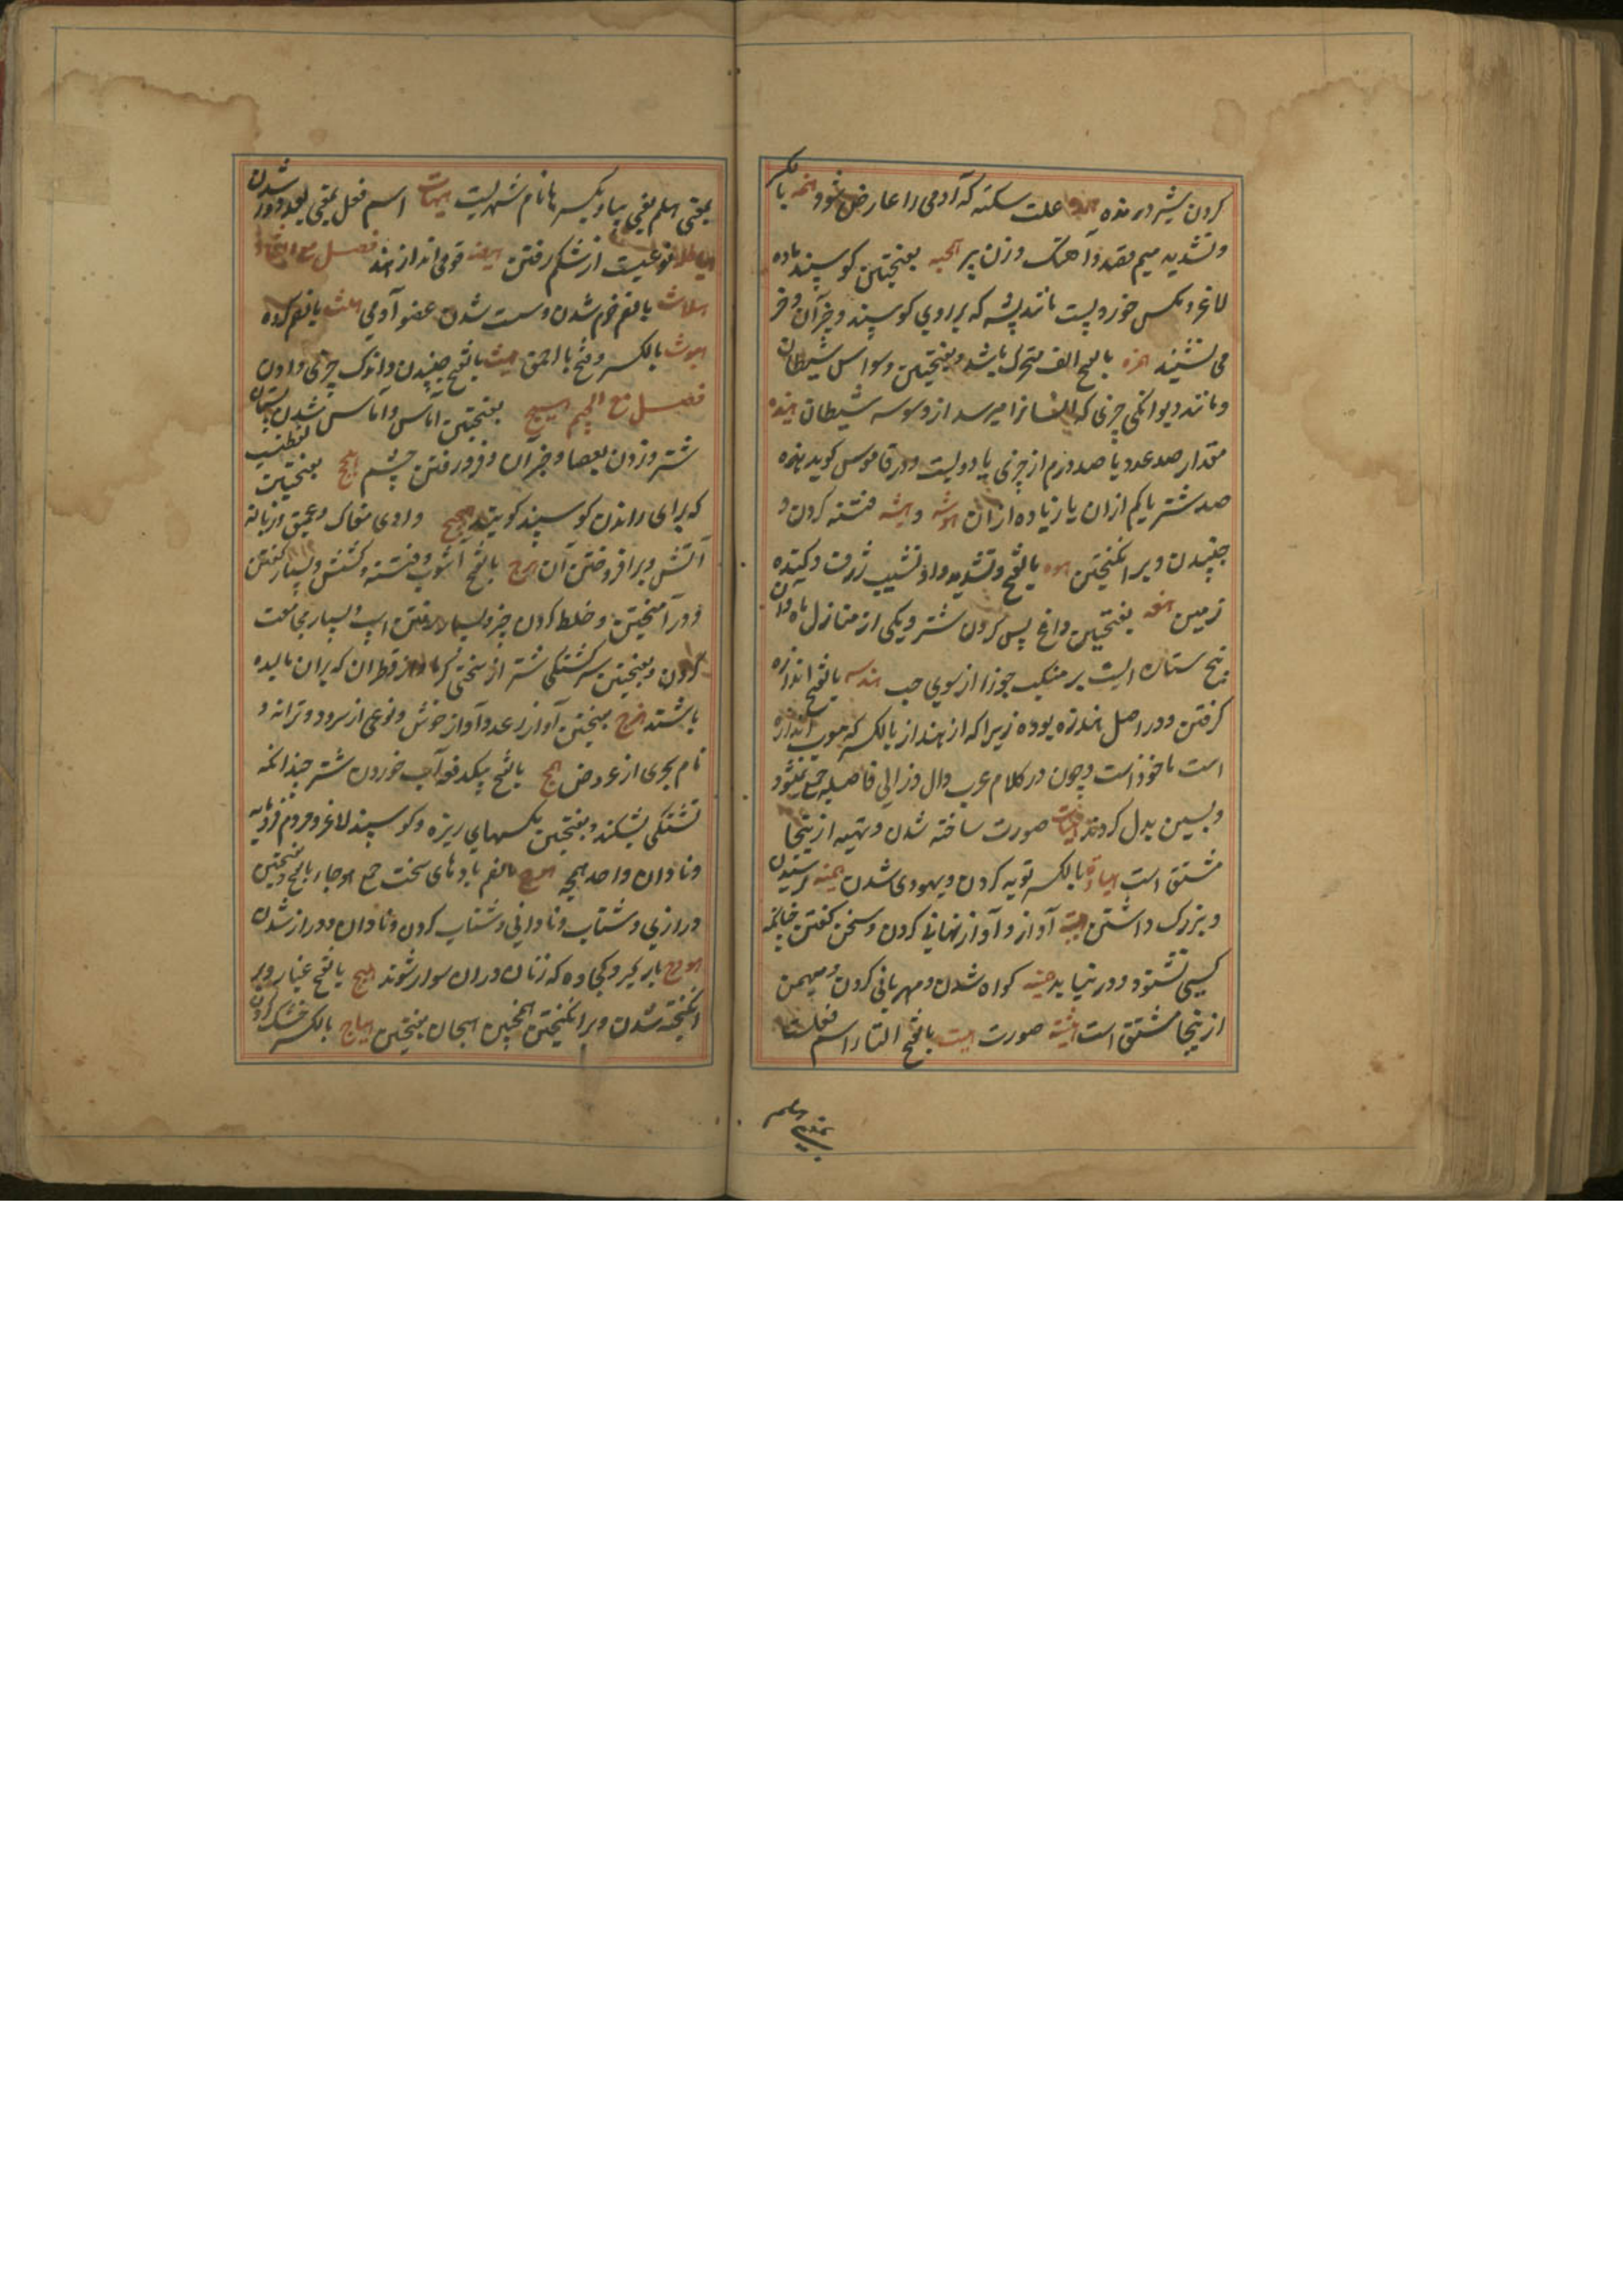 کردن شیر در معده علت سکته که آدمی را عارض شود همه بالکسر
و تشدید میم قصد و آهنک و زن پیر همجه بفتحتین کوسپند ماده
لاغر و مکس خورد پست مانند پشه که بر روی کوسپند و خر آن و خر
می نشیند همزه بالفتح الف متحرک باشد و بفتحتین وسواس شیطان
و مانند دیوانکی چیزی که انسانرا میرسد از وسوسه شیطان هنیده
مقدار صد عدد یا صد درم از چیزی یا دویست و در قاموس کوید هنیده
صد شتر یا کم ازان یا زیاده ازان هوشه و هیشه فتنه کردن و
جنبیدن و برانکیختن هوه بالفتح و تشدید واو نشیب ژرف و کنده
زمین هقعه بفتحتین داغ پس کردن شتر و یکی از منازل ماه و آن
پنج ستاره ایست بر منکب جوزا از سوی چپ هندسه بالفتح اندازه
کرفتن و در اصل هندزه بوده زیرا که از هنداز بالکسر که معرب اندازه
است ماخوذ است و چون در کلام عرب دال و زا بی فاصله جمع نمیشود
و بسین بدل کردند هیات صورت ساخته شدن و تهیه ازینجا
مشتق است هیاده بالکسر توبه کردن و یهودی شدن هیبه ترسیدن
و بزرک داشتن آواز و آواز نهانی کردن و سخن کفتن چنانکه
کسی نشنود و در نیابد کواه شدن و مهربانی کردن و مهیمن
ازینجا مشتق است هیئة صورت هیت بالفتح التا را اسم فعلست
بمعنی
بمعنی هلم یعنی بیا و بکسر ها نام شهریست هیهات اسم فعل بمعنی بعد و دور شدن
نوعیست از شکم رفتن هیضه قومی اند از هند فصل مع الثاء
هلاث بالضم نرم شدن و سست شدن عضو آدمی هلثه بالضم کروه
هبوث بالکسر و فتح با احمق هیث بالفتح جنبیدن و اندک چیزی دادن
فصل مع الجیم هبج بفتحتین آماس و آماس شدن پستان
شتر و زدن بعصا و جز آن و فرو رفتن چشم هجج بفتحتین لفظیست
که برای راندن کوسپند کویند هجیج وادی مغاک و عمیق و زبانه
آتش و برافروختن آن هرج بالفتح آشوب و فتنه و کشش و بسیار کفتن
و در آمیختن و خلط کردن چیز و بسیار رفتن اسپ و بسیار مجامعت
کردن و بفتحتین سرکشتکی شتر از سختی کرما و از قطران که بران مالیده
باشند هزج بفتحتین آواز رعد و آواز خوش و نوعی از سرود و ترانه و
نام بحری از عروض همج بالفتح بیکدفعه آب خوردن شتر چندانکه
تشنکی بشکند و بفتحتین مکسهای ریزه و کوسپند لاغر و مردم فرومایه
و نادان واحد همجه هوج بالضم بادهای سخت جمع هوجاء بالفتح و بفتحتین
درازی و شتاب و نادانی و شتاب کردن و نادان و دراز شدن
هودج بار کیر و کجاوه که زنان دران سوار شوند هیج بالفتح غبار و بر
انکیخته شدن و برانکیختن همچنین هیجان بفتحتین هیاج بالکسر خشک کردن